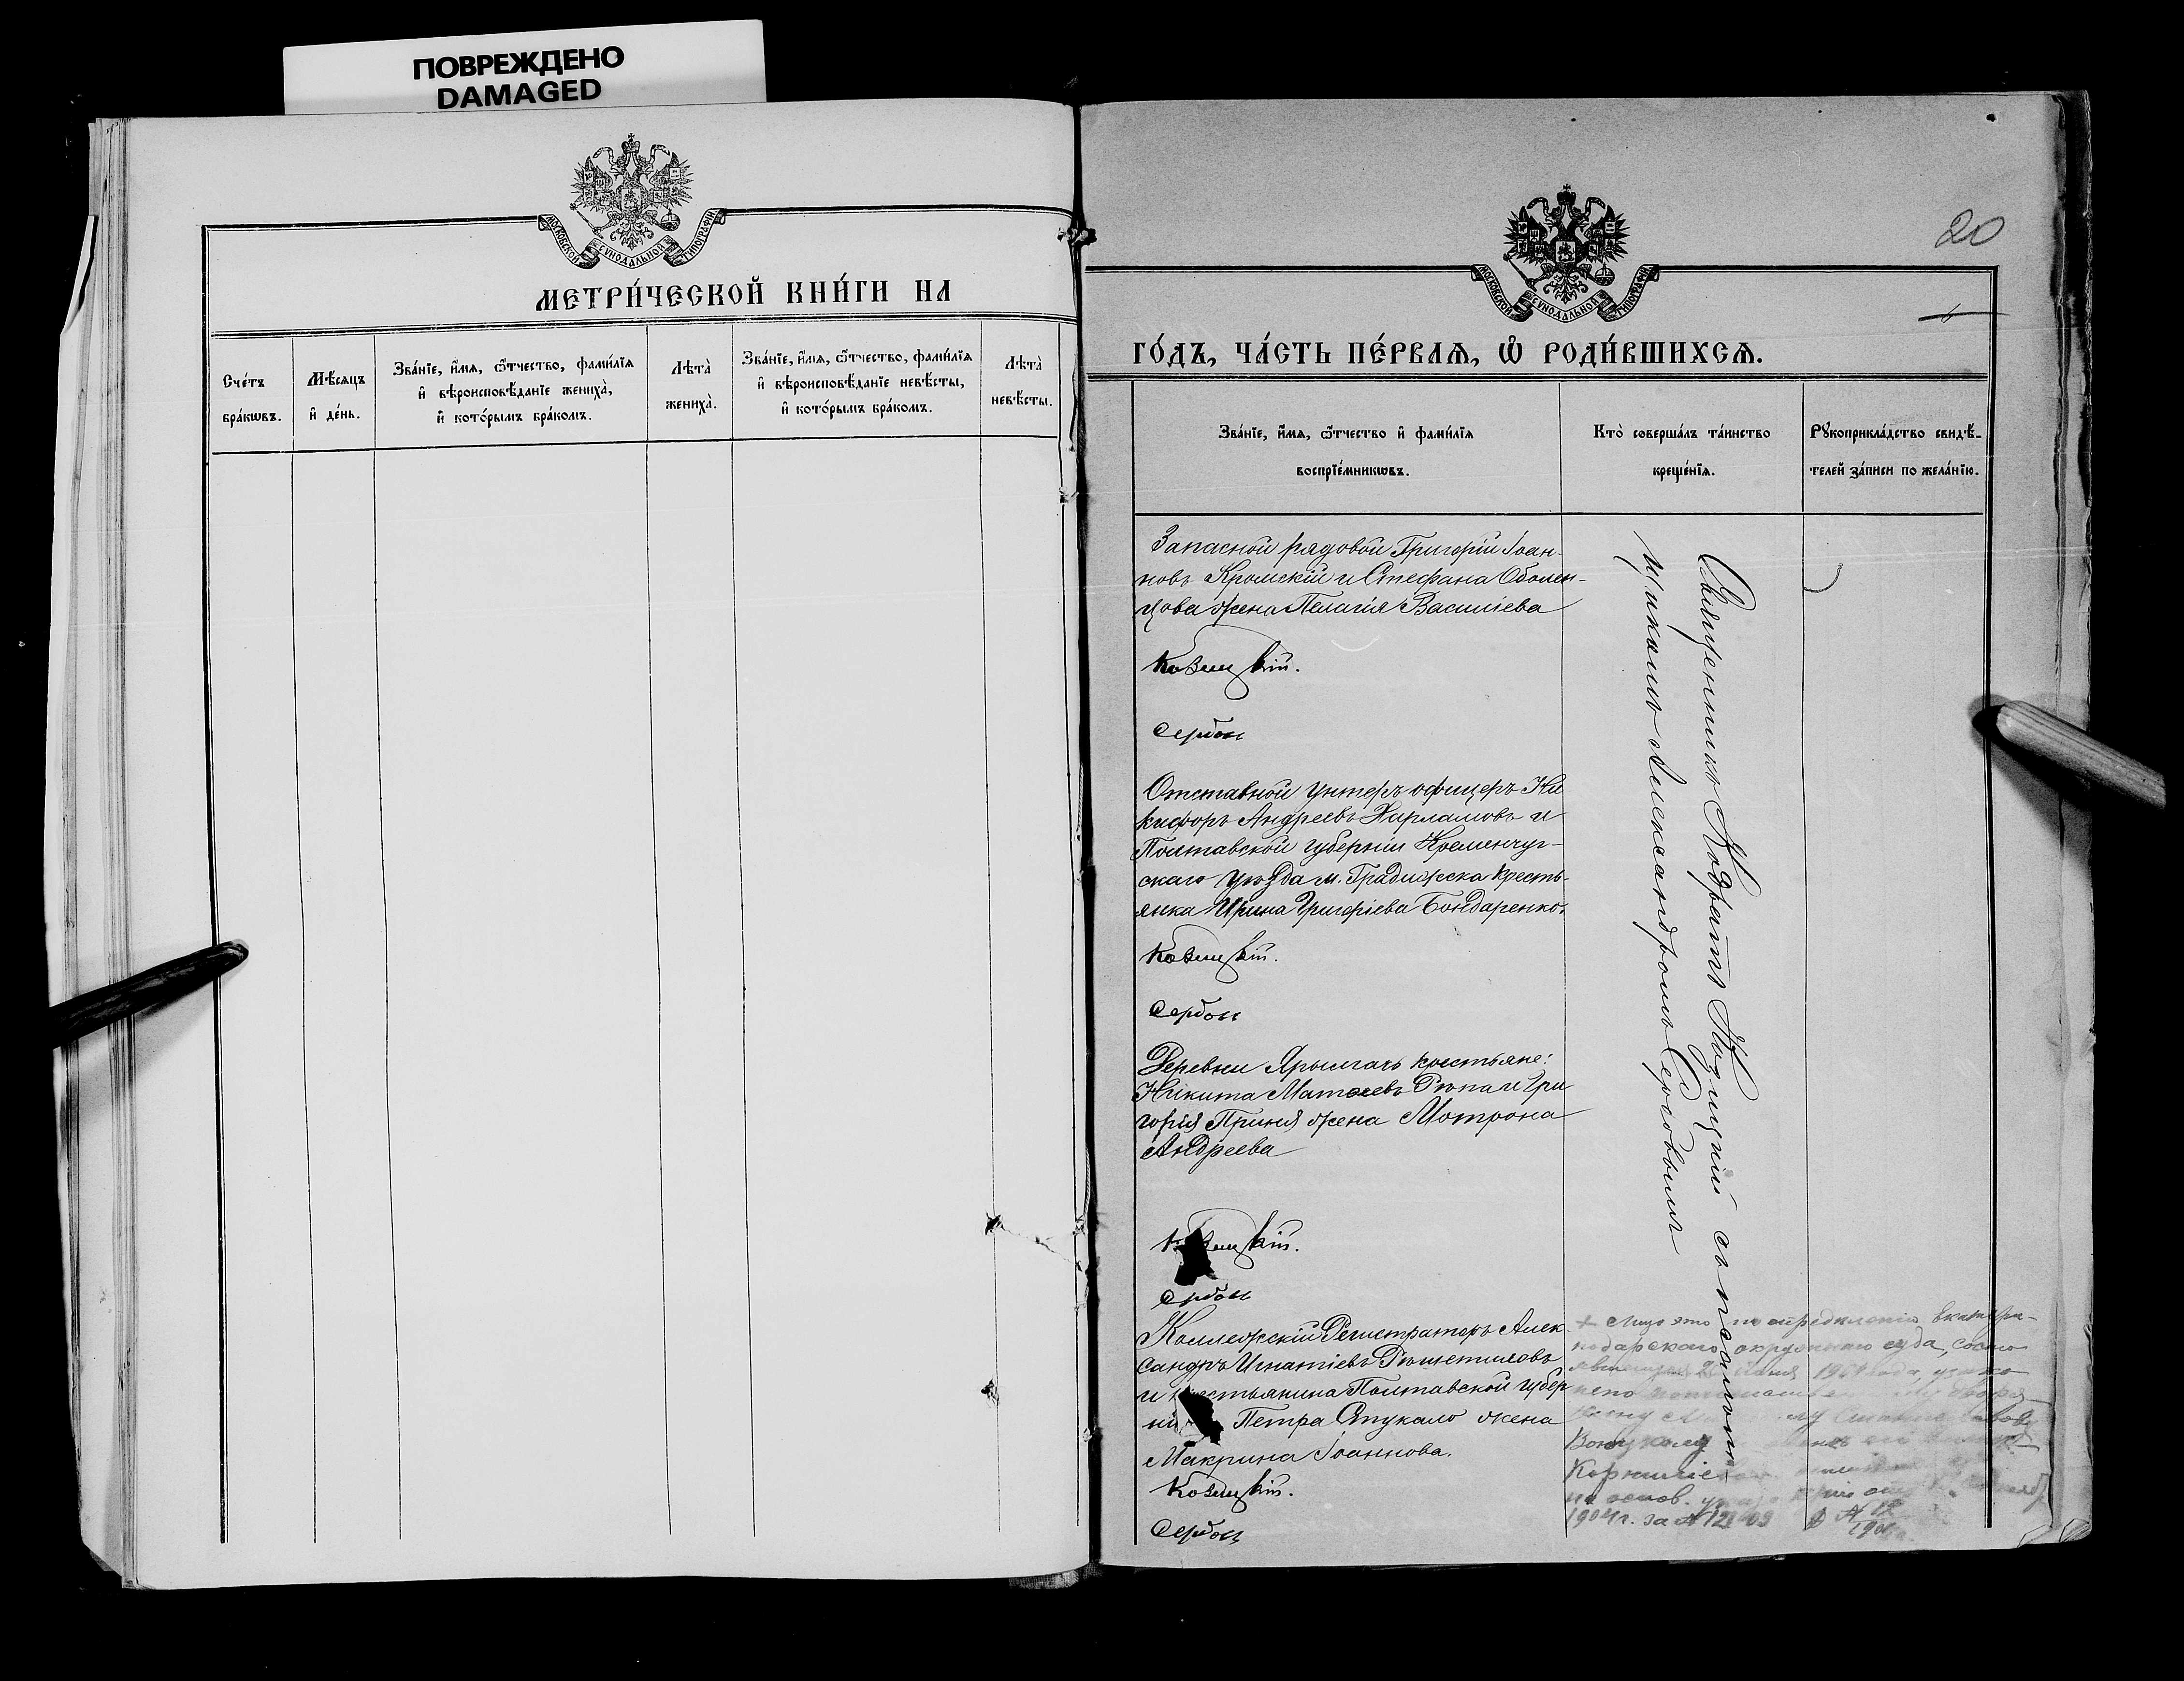 ПОВРЕЖДЕНО
DAMAGED
МОСКОВСКОЙ СѴНОДАЛЬНОЙ ТИПОГРАФІИ
МЕТРИ́ЧЕСКОЙ КНИ́ГИ НА
Сче́тъ
бра́кѡвъ.
Мѣ́сяцъ
и҆ де́нь.
Зва́нїе, и҆́мѧ, ѻ҆́тчество, фамилїѧ
и҆ вѣроисповѣ́данїе жениха̀,
и҆ кото́рымъ бра́комъ.
Лѣта̀
жениха̀.
Зва́нїе, и҆́мѧ, ѻ҆́тчество, фамилїѧ
и҆ вѣроисповѣ́данїе невѣ́сты,
и҆ кото́рымъ бра́комъ.
Лѣта̀
невѣ́сты.
20
МОСКОВСКОЙ СѴНОДАЛЬНОЙ ТИПОГРАФІИ
ГО́ДЪ, ЧА́СТЬ ПЕ́РВАѦ, Ѡ҆ РОДИ́ВШИХСѦ.
Зва́нїе, и҆́мѧ, ѻ҆́тчество и҆ фами́лїѧ
воспрїе́мникѡвъ.
Кто̀ соверша́лъ та́инство
креще́нїѧ.
Рꙋкоприкла́дство свидѣ́-
телей за́писи по жела́нїю.
Запасной рядовой Григорій Іоан-
новъ Кромскій и Стефана Оболен-
цова жена Пелагія Василіева
Козицкій.
Сербов
Отставной унтеръ офицеръ Ни
кифоръ Андреевъ Харламовъ и
Полтавской губерніи Кременчуг-
скаго уѣзда м. Градижска кресть-
янка Ирина Григоріева Бондаренко.
Козицкій.
Сербов
Деревни Ярылгачъ крестьяне:
Никита Матѳеевъ Рѣпа и Гри
горія Приня жена Мотрона
Андреева
Козицкій.
Сербов
Коллежскій Регистраторъ Алек
сандръ Игнатіевъ
и крестьянина Полтавской губер
ніи Петра Стукало жена
Макрина Іоаннова.
Козицкій.
Сербов
Священникъ Кодратъ Козицкій съ псаломщ
щикомъ Александромъ Сербовымъ
+ Лицо это по опредѣленію Екатери-
нодарскаго окружнаго суда, состо
1904 года, узако
на основ.
1904 г. за №